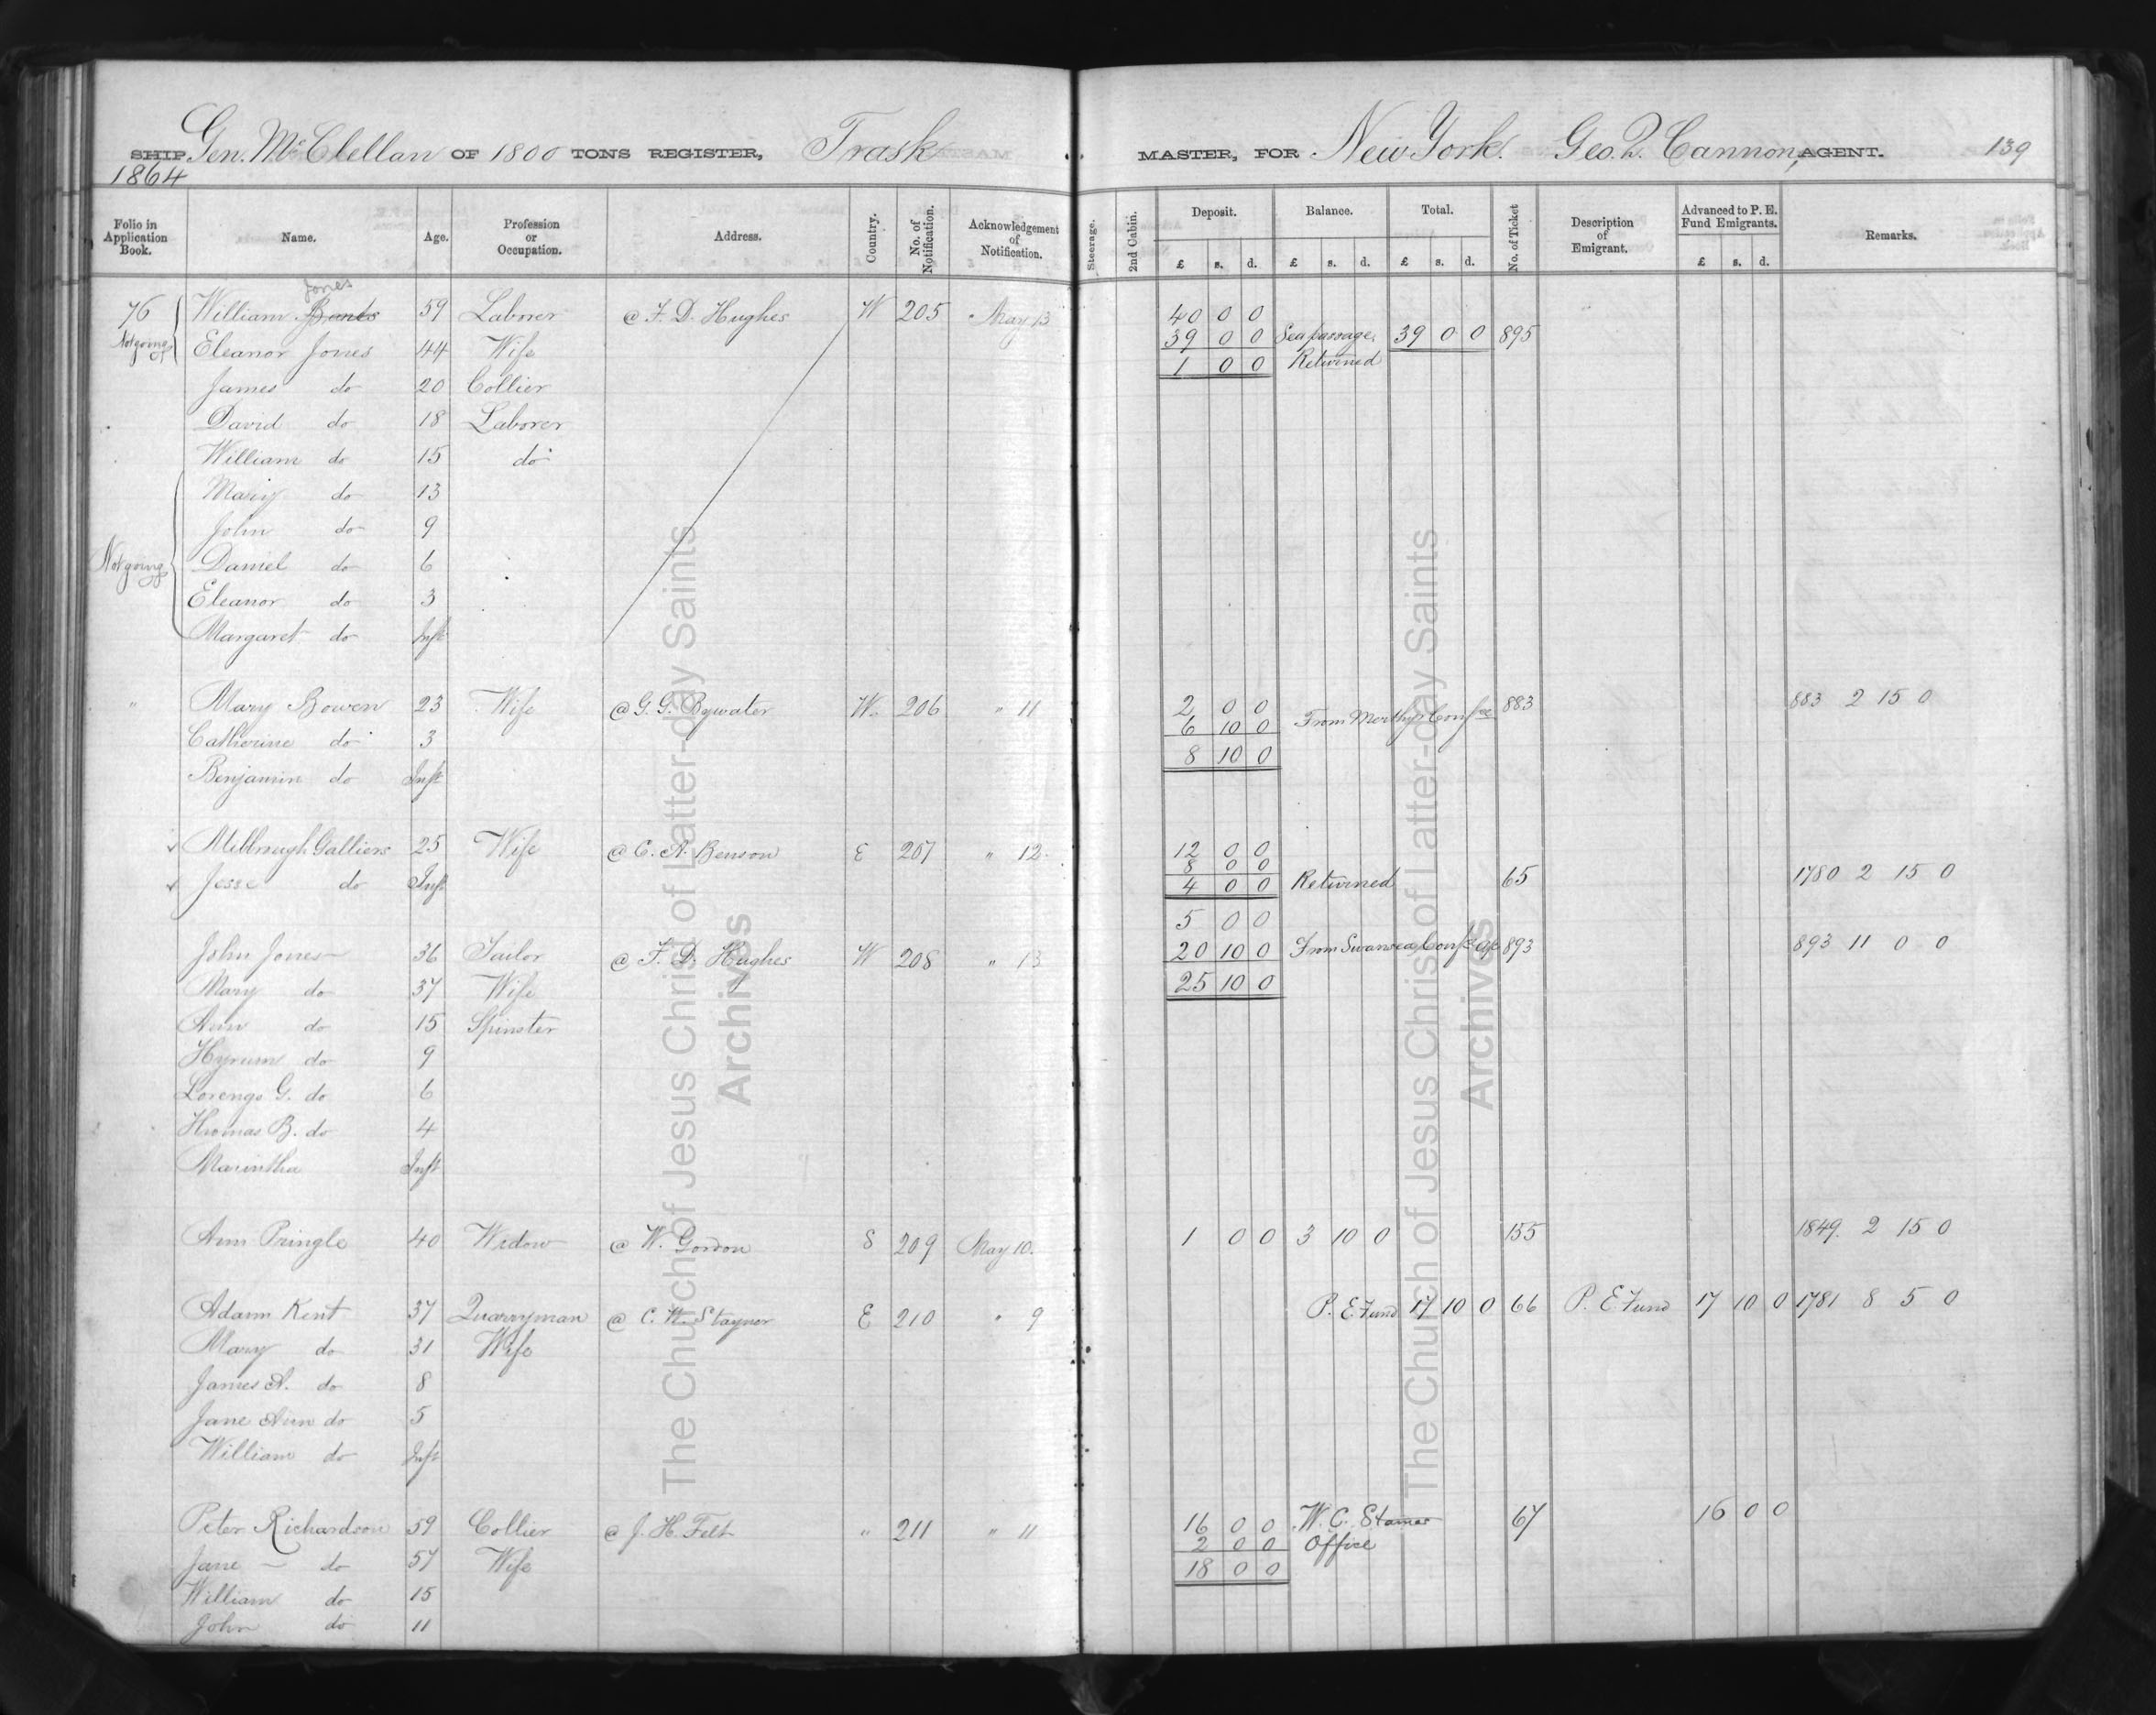 SHIP Gen. McClellan OF 1800 TONS REGISTER, Trask MASTER, FOR New York. Geo. Q. Cannon, AGENT. 139
1864
Folio in Application Book. Name. Age. Profession or Occupation. Address. Country. No. of Notification. Acknowledgement of Notification. Steerage. 2nd Cabin. Deposit. Balance. Total. No. of Ticket Description of Emigrant. Advanced to P. E. Fund Emigrants. Remarks.
£ s. d. £ s. d. £ s. d. £ s. d.
Jones
76 William 59 Laborer @ F. D. Hughes W 205 May 13 40 0 0
Not going Eleanor Jones 44 Wife 39 0 0 Sea passage 39 0 0 895
1 0 0 Returned
James do 20 Collier
David do 18 Laborer
William do 15 do
Mary do 13
John do 9
Not going Daniel do 6
Eleanor do 3
Margaret do Inft
" Mary Bowen 23 Wife @ G. G. Bywater W. 206 " 11 2 0 0 883 883 2 15 0
6 10 0 From Merthyr Confce
Catherine do 3 8 10 0
Benjamin do Inft
Milbrough Galliers 25 Wife @ E. A. Benson E 207 " 12 12 0 0
8 0 0
Jesse do Inft 4 0 0 Returned 65 1780 2 15 0
5 0 0
John Jones 36 Tailor @ F. D. Hughes W 208 " 13 20 10 0 From Swansea Confce 893 893 11 0 0
Mary do 37 Wife 25 10 0
Ann do 15 Spinster
Hyrum do 9
Lorenzo G. do 6
Thomas B. do 4
Marintha Inft
Ann Pringle 40 Widow @ W. Gordon S 209 May 10. 1 0 0 3 10 0 155 1849. 2 15 0
Adam Kent 37 Quarryman @ C. W. Staynor E 210 " 9 P. E. Fund 17 10 0 66 P. E. Fund 17 10 0 1781 8 5 0
Mary do 31 Wife
James A. do 8
Jane Ann do 5
William do Inft
Peter Richardson 59 Collier @ J. H. Felt " 211 " 11 16 0 0 W. C. 67 16 0 0
2 0 0 Office
Jane do 57 Wife 18 0 0
William do 15
John do 11
The Church of Jesus Christ of Latter-day Saints
Archives
The Church of Jesus Christ of Latter-day Saints
Archives